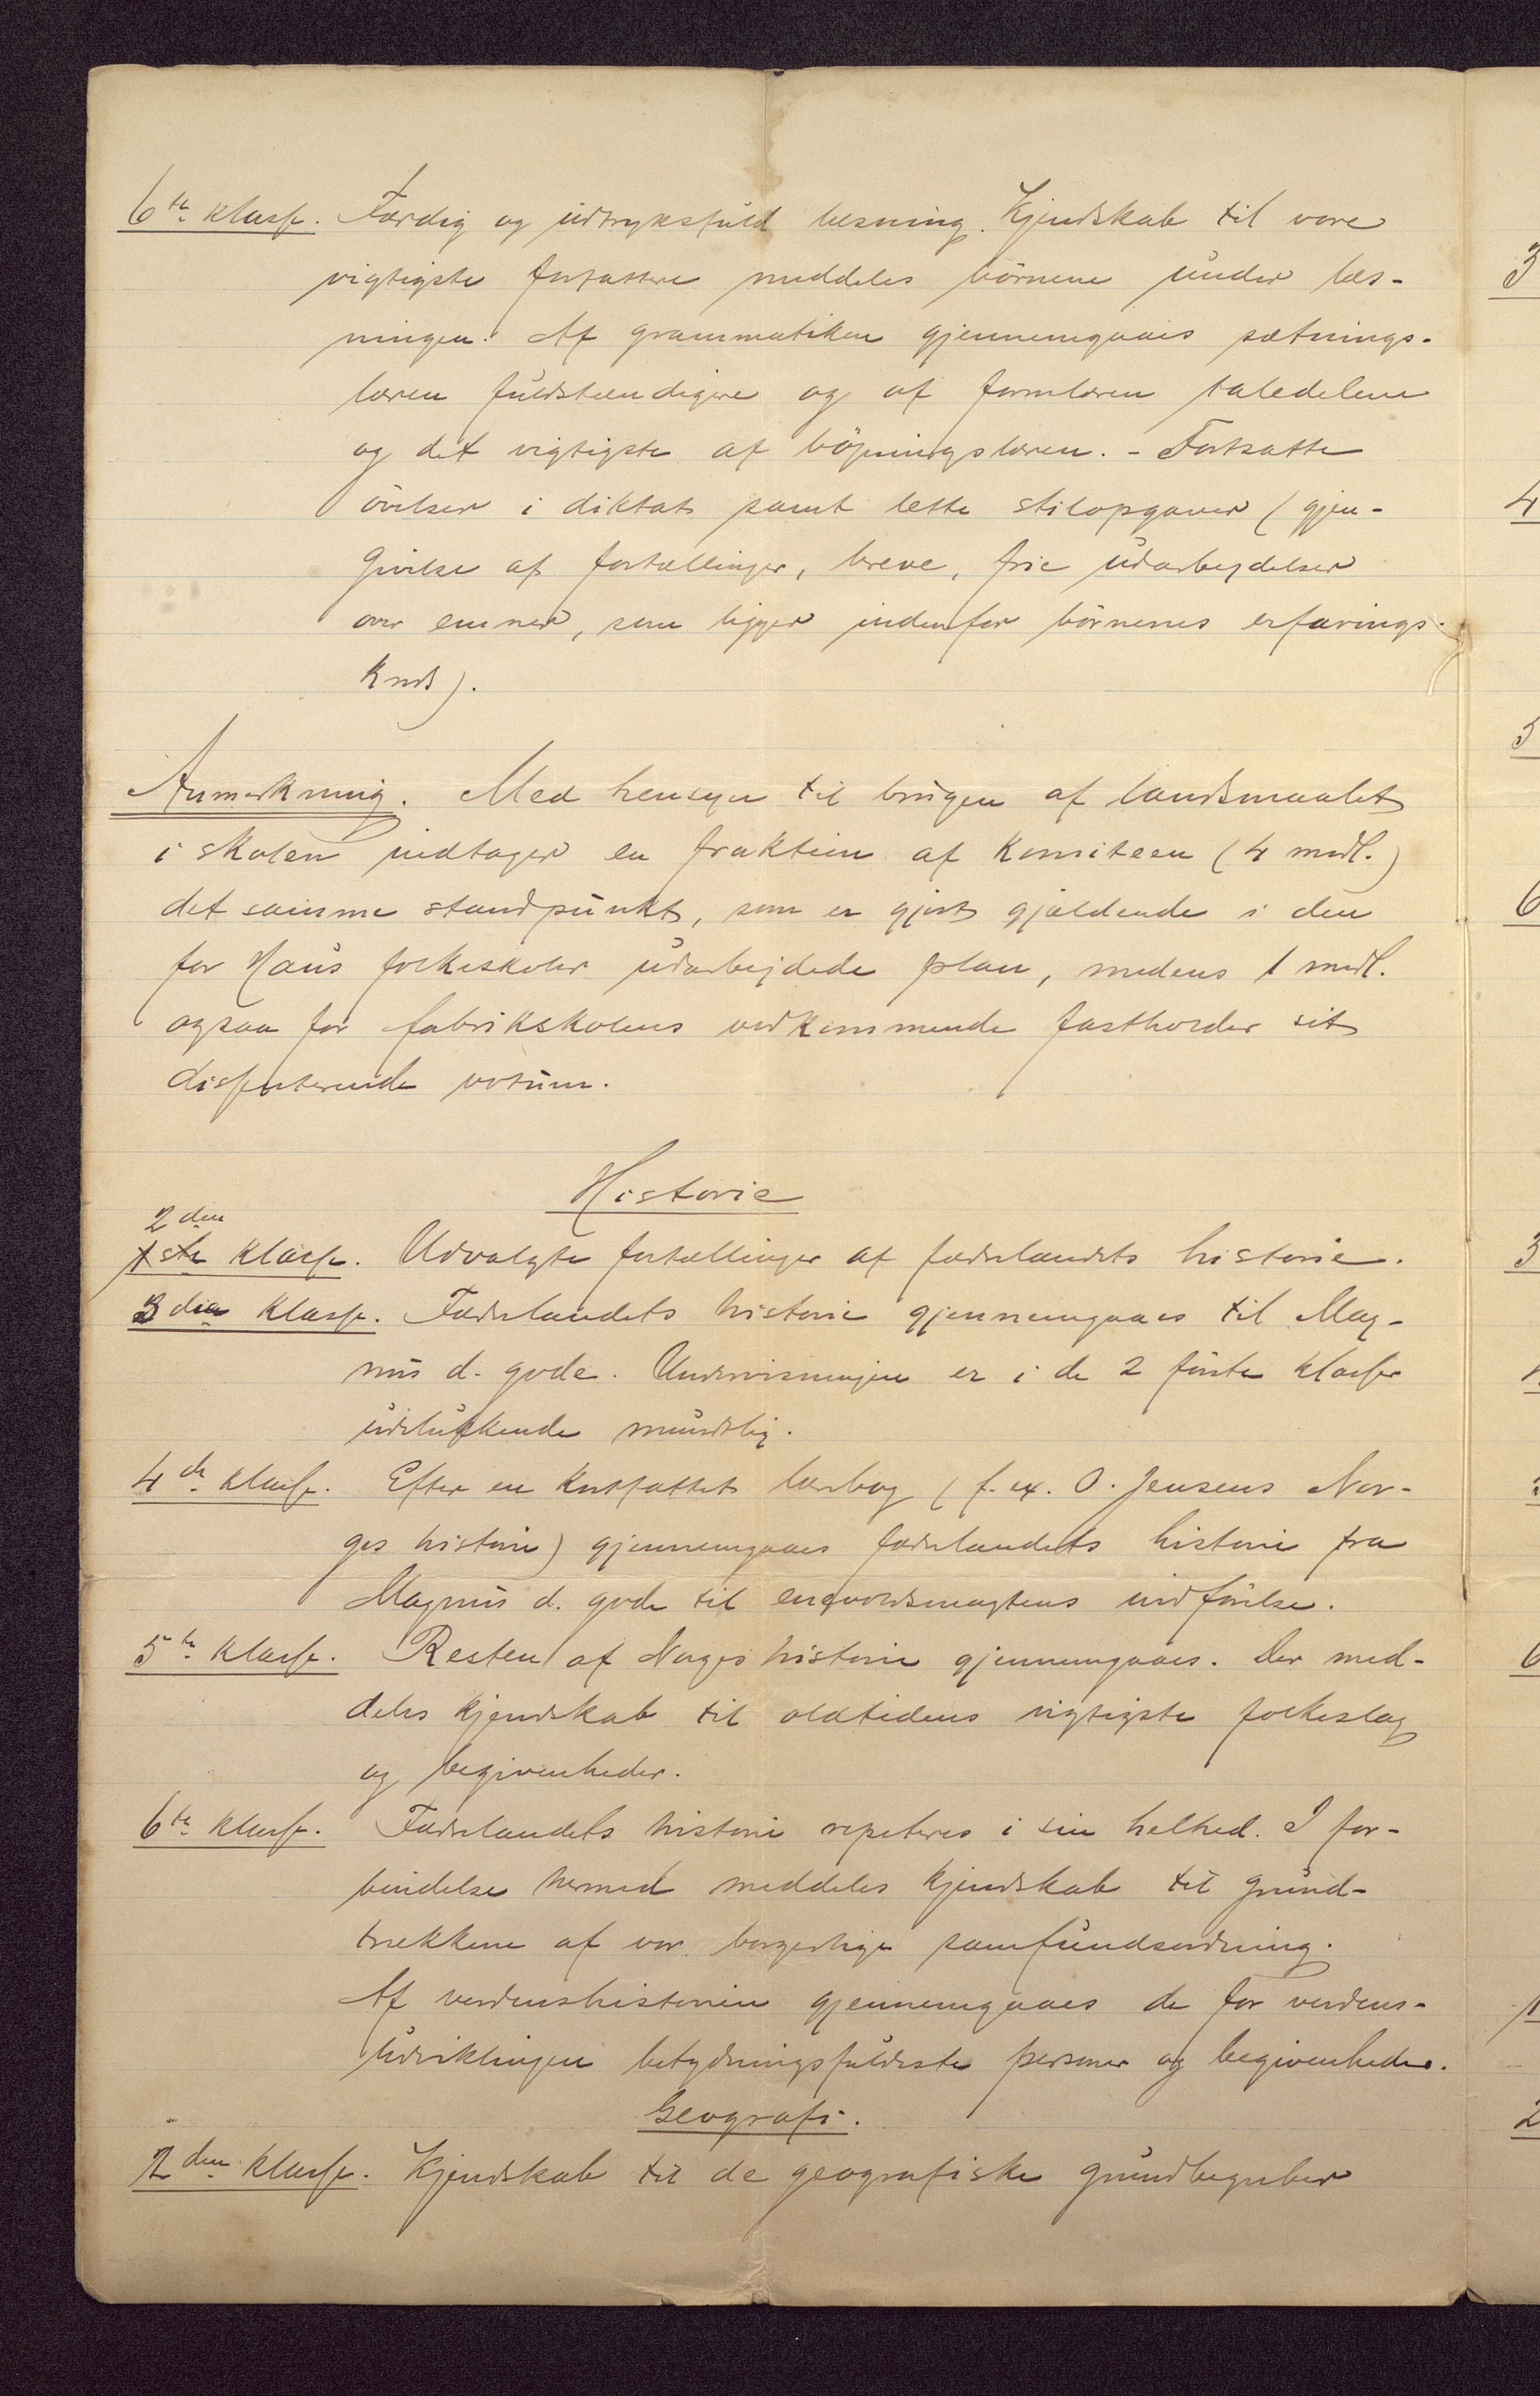 6te klasse. Færdig og udtryksfuld læsning. Kjendskab til vore
vigtigste forfattere meddeles börnene under læs-
ningen. Af grammatiken gjennemgaaes sætnings-
læren fuldstændigere og af formlæren taledelene
og det vigtigste af böiningslæren. - Fortsatte
övelser i diktat samt lette stilopgaver (gjen-
givelse af fortællinger, breve, frie udarbeydelser
over emner, som ligger indenfor börnenes erfarings-
kreds).
Anmerkning. Med hensyn til brugen af landsmaalet
i skolen indtager en fraktion af komiteen (4 medl.)
det samme standpunkt, som er gjort gjældende i den
for Haus folkeskoler udarbejdede plan, medens 1 medl.
ogsaa for fabrikskolens vedkommende fastholder sit
dissenterende votum.
Historie
2den
1ste klasse. Udvalgte fortællinger af fædrelandets historie.
3die klasse. Fædrelandets historie gjennemgaaes til Mag-
nus d. gode. Undervisningen er i de 2 förste klasser
udelukkende mundtlig.
4de klasse. Efter en kortfattet lærebog (f. ex. O. Jensens Nor-
ges historie) gjennemgaaes fædrelandets historie fra
Magnus d. gode til enevoldsmagtens indförelse.
5te klasse. Resten af Norges historie gjennemgaaes. Der med-
deles kjendskab til oldtidens vigtigste folkeslag
og begivenheder.
6te klasse. Fædrelandets historie repeteres i sin helhed. I for-
bindelse hermed meddeles kjendskab til grund-
trækkene af vor borgerlige samfundsordning.
Af verdenshistorien gjennemgaaes de for verdens-
udviklingen betydningsfuldeste personer og begivenheder.
Geografi.
2den klasse. Kjendskab til de geografiske grundbegreber